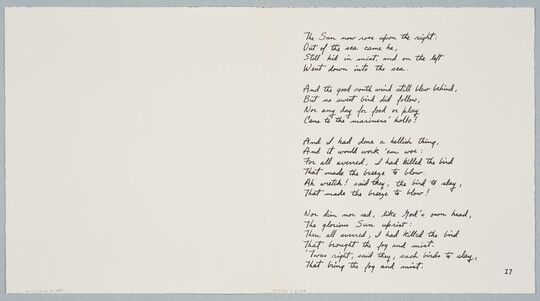 The Sun now rose upon the right:
Out of the sea came he,
Still hid in mist, and on the left
Went down into the sea.
And the good south wind still blew behind,
But no sweet bird did follow,
Nor any day for food or play
Came to the mariners' hollo!
And I had done a hellish thing,
And it would work 'em woe:
For all averred, I had killed the bird
That made the breeze to blow.
Ah wretch! said they, the bird to slay,
That made the breeze to blow!
Nor dim nor red, like God's own head,
The glorious Sun uprist:
Then all averred, I had killed the bird
That brought the fog and mist.
'Twas right, said they, such birds to slay,
That bring the fog and mist.
17